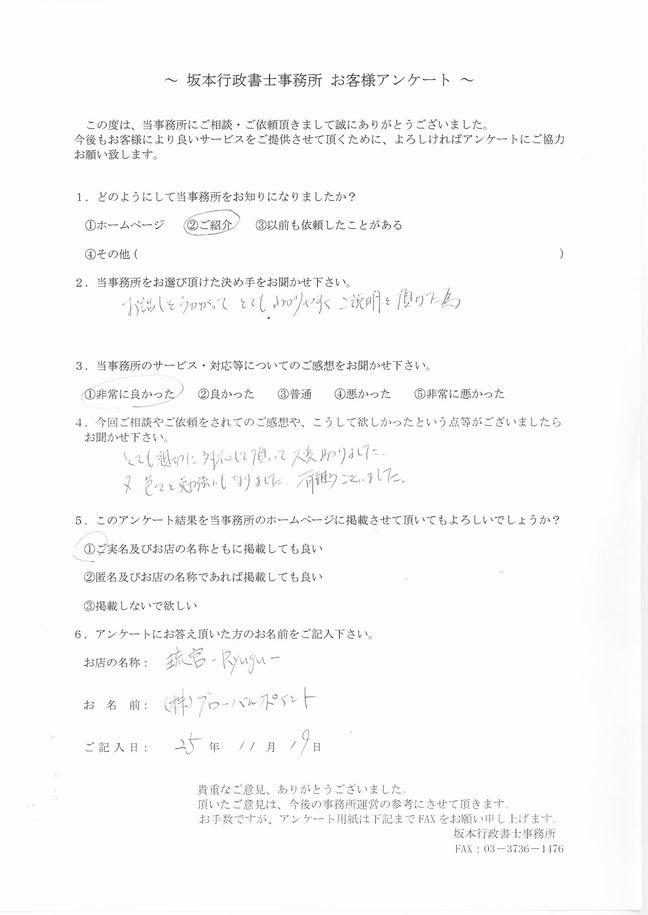 ～ 坂本行政書士事務所 お客様アンケート ～
この度は、当事務所にご相談・ご依頼頂きまして誠にありがとうございました。
今後もお客様により良いサービスをご提供させて頂くために、よろしければアンケートにご協力
お願い致します。
１．どのようにして当事務所をお知りになりましたか？
①ホームページ ②ご紹介 ③以前も依頼したことがある
④その他（ ）
２．当事務所をお選び頂けた決め手をお聞かせ下さい。
お話しをうかがって とても わかりやすく ご説明を頂けた為
３．当事務所のサービス・対応等についてのご感想をお聞かせ下さい。
①非常に良かった ②良かった ③普通 ④悪かった ⑤非常に悪かった
４．今回ご相談やご依頼をされてのご感想や、こうして欲しかったという点等がございましたら
お聞かせ下さい。
とても適切に対応して頂いて大変助かりました。
又、色々と勉強にもなりました。有難うございました。
５．このアンケート結果を当事務所のホームページに掲載させて頂いてもよろしいでしょうか？
①ご実名及びお店の名称ともに掲載しても良い
②匿名及びお店の名称であれば掲載しても良い
③掲載しないで欲しい
６．アンケートにお答え頂いた方のお名前をご記入下さい。
お店の名称： 琉宮－Ryugu－
お 名 前： (株)グローバルポイント
ご記入日： 25 年 11 月 19 日
貴重なご意見、ありがとうございました。
頂いたご意見は、今後の事務所運営の参考にさせて頂きます。
お手数ですが、アンケート用紙は下記までFAXをお願い申し上げます。
坂本行政書士事務所
FAX：03－3736－1476